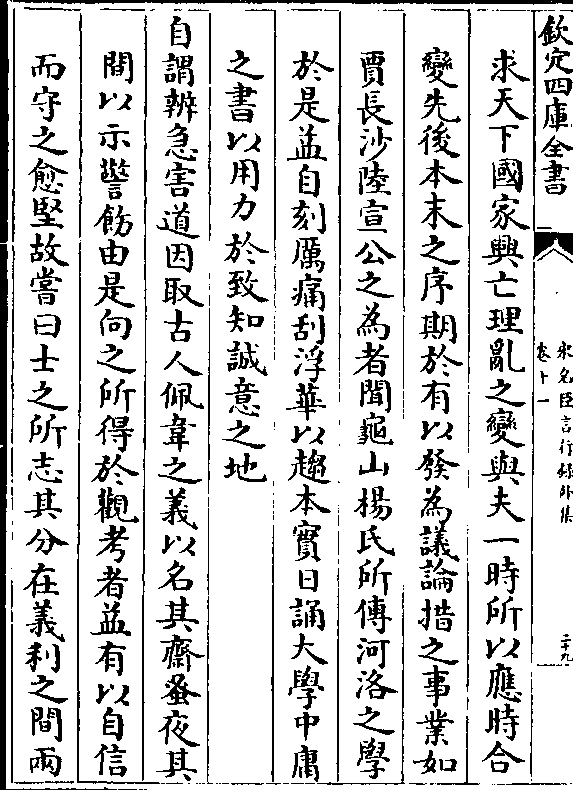 欽定四庫全書
宋名臣言行錄外集
卷十一
二十九
求天下國家興亡理亂之變與夫一時所以應時合
變先後本末之序期於有以發為議論措之事業如
賈長沙陸宣公之為者聞龜山楊氏所傳河洛之學
於是益自刻厲痛刮浮華以趨本實日誦大學中庸
之書以用力於致知誠意之地
自謂辨急害道因取古人佩韋之義以名其齋蚤夜其
間以示警飭由是向之所得於觀考者益有以自信
而守之愈堅故嘗曰士之所志其分在義利之間兩